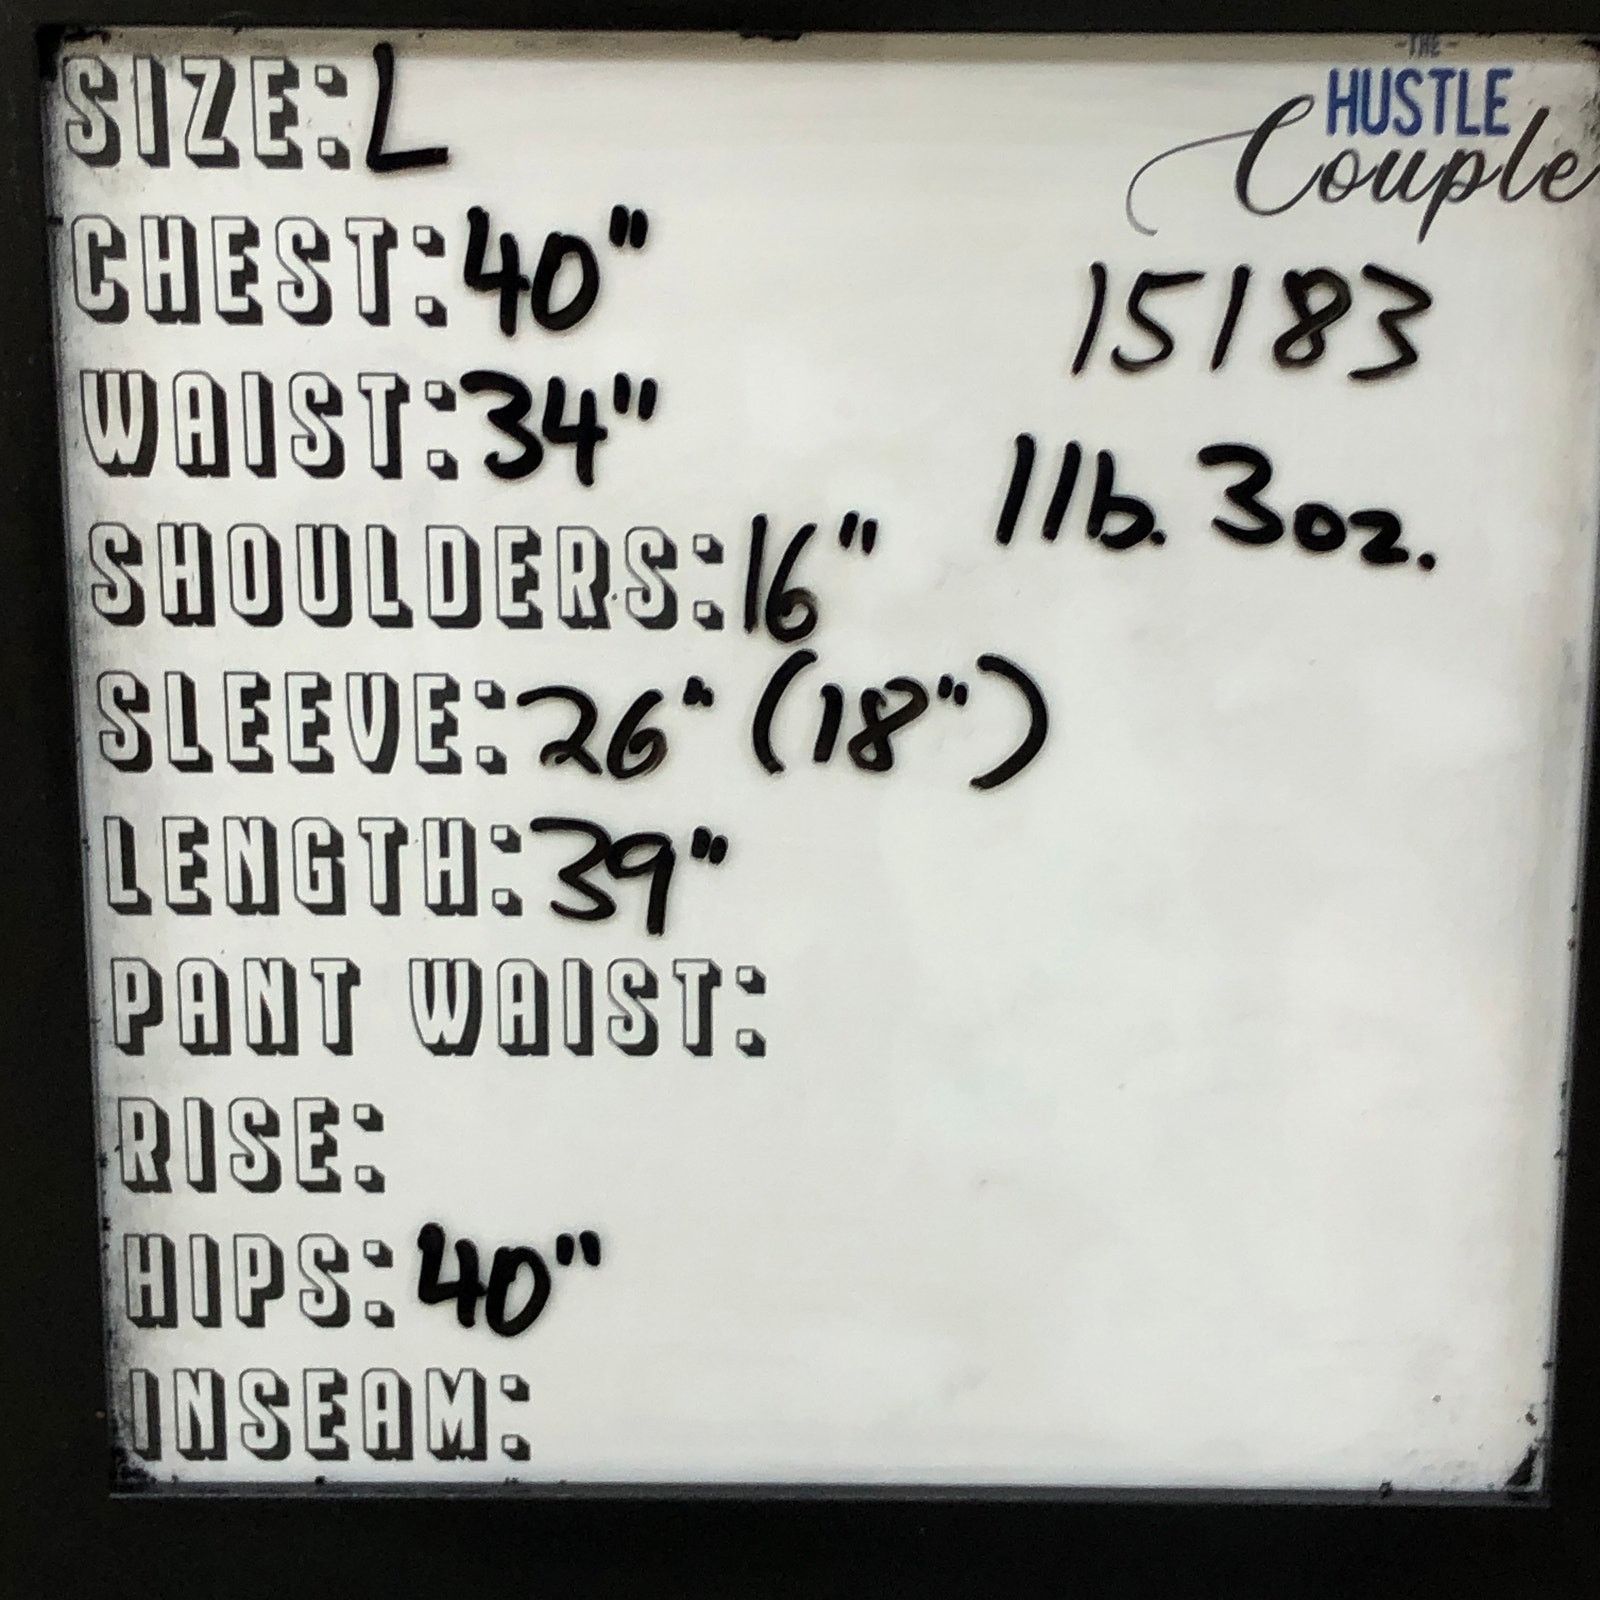 SIZE: L
-THE-
HUSTLE
Couple
CHEST: 40"
15183
WAIST: 34"
1lb. 3oz.
SHOULDERS: 16"
SLEEVE: 26" (18")
LENGTH: 39"
PANT WAIST:
RISE:
HIPS: 40"
INSEAM: